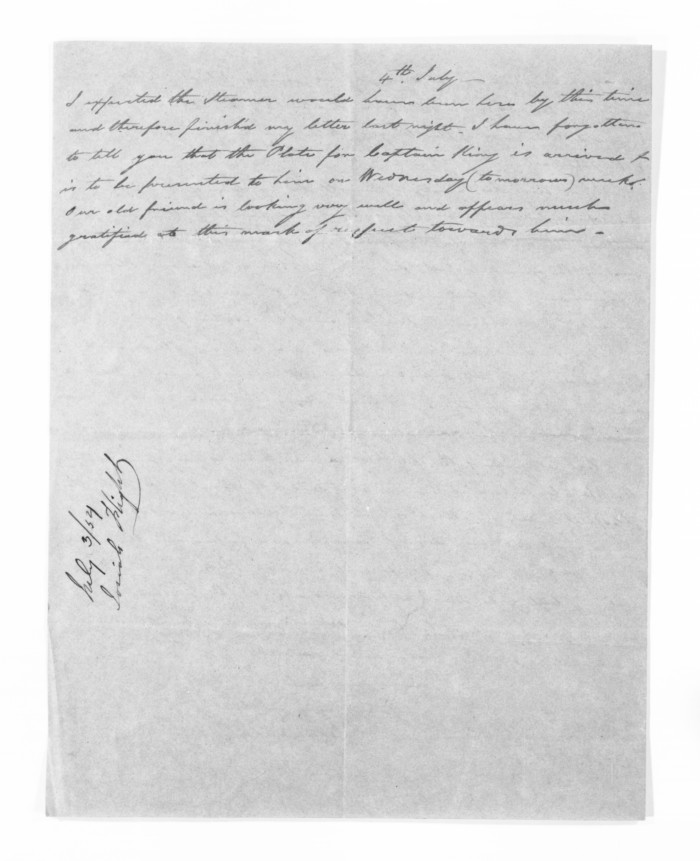 4th. July —
I expected the Steamer would have been here by this time
and therefore finished my letter last night. I have forgotten
to tell you that the Plate for Captain King is arrived &
is to be presented to him on Wednesday (tomorrow) week.
Our old friend is looking very well and appears much
gratified at this mark of respect towards him.
July 3/54
Josiah Flight